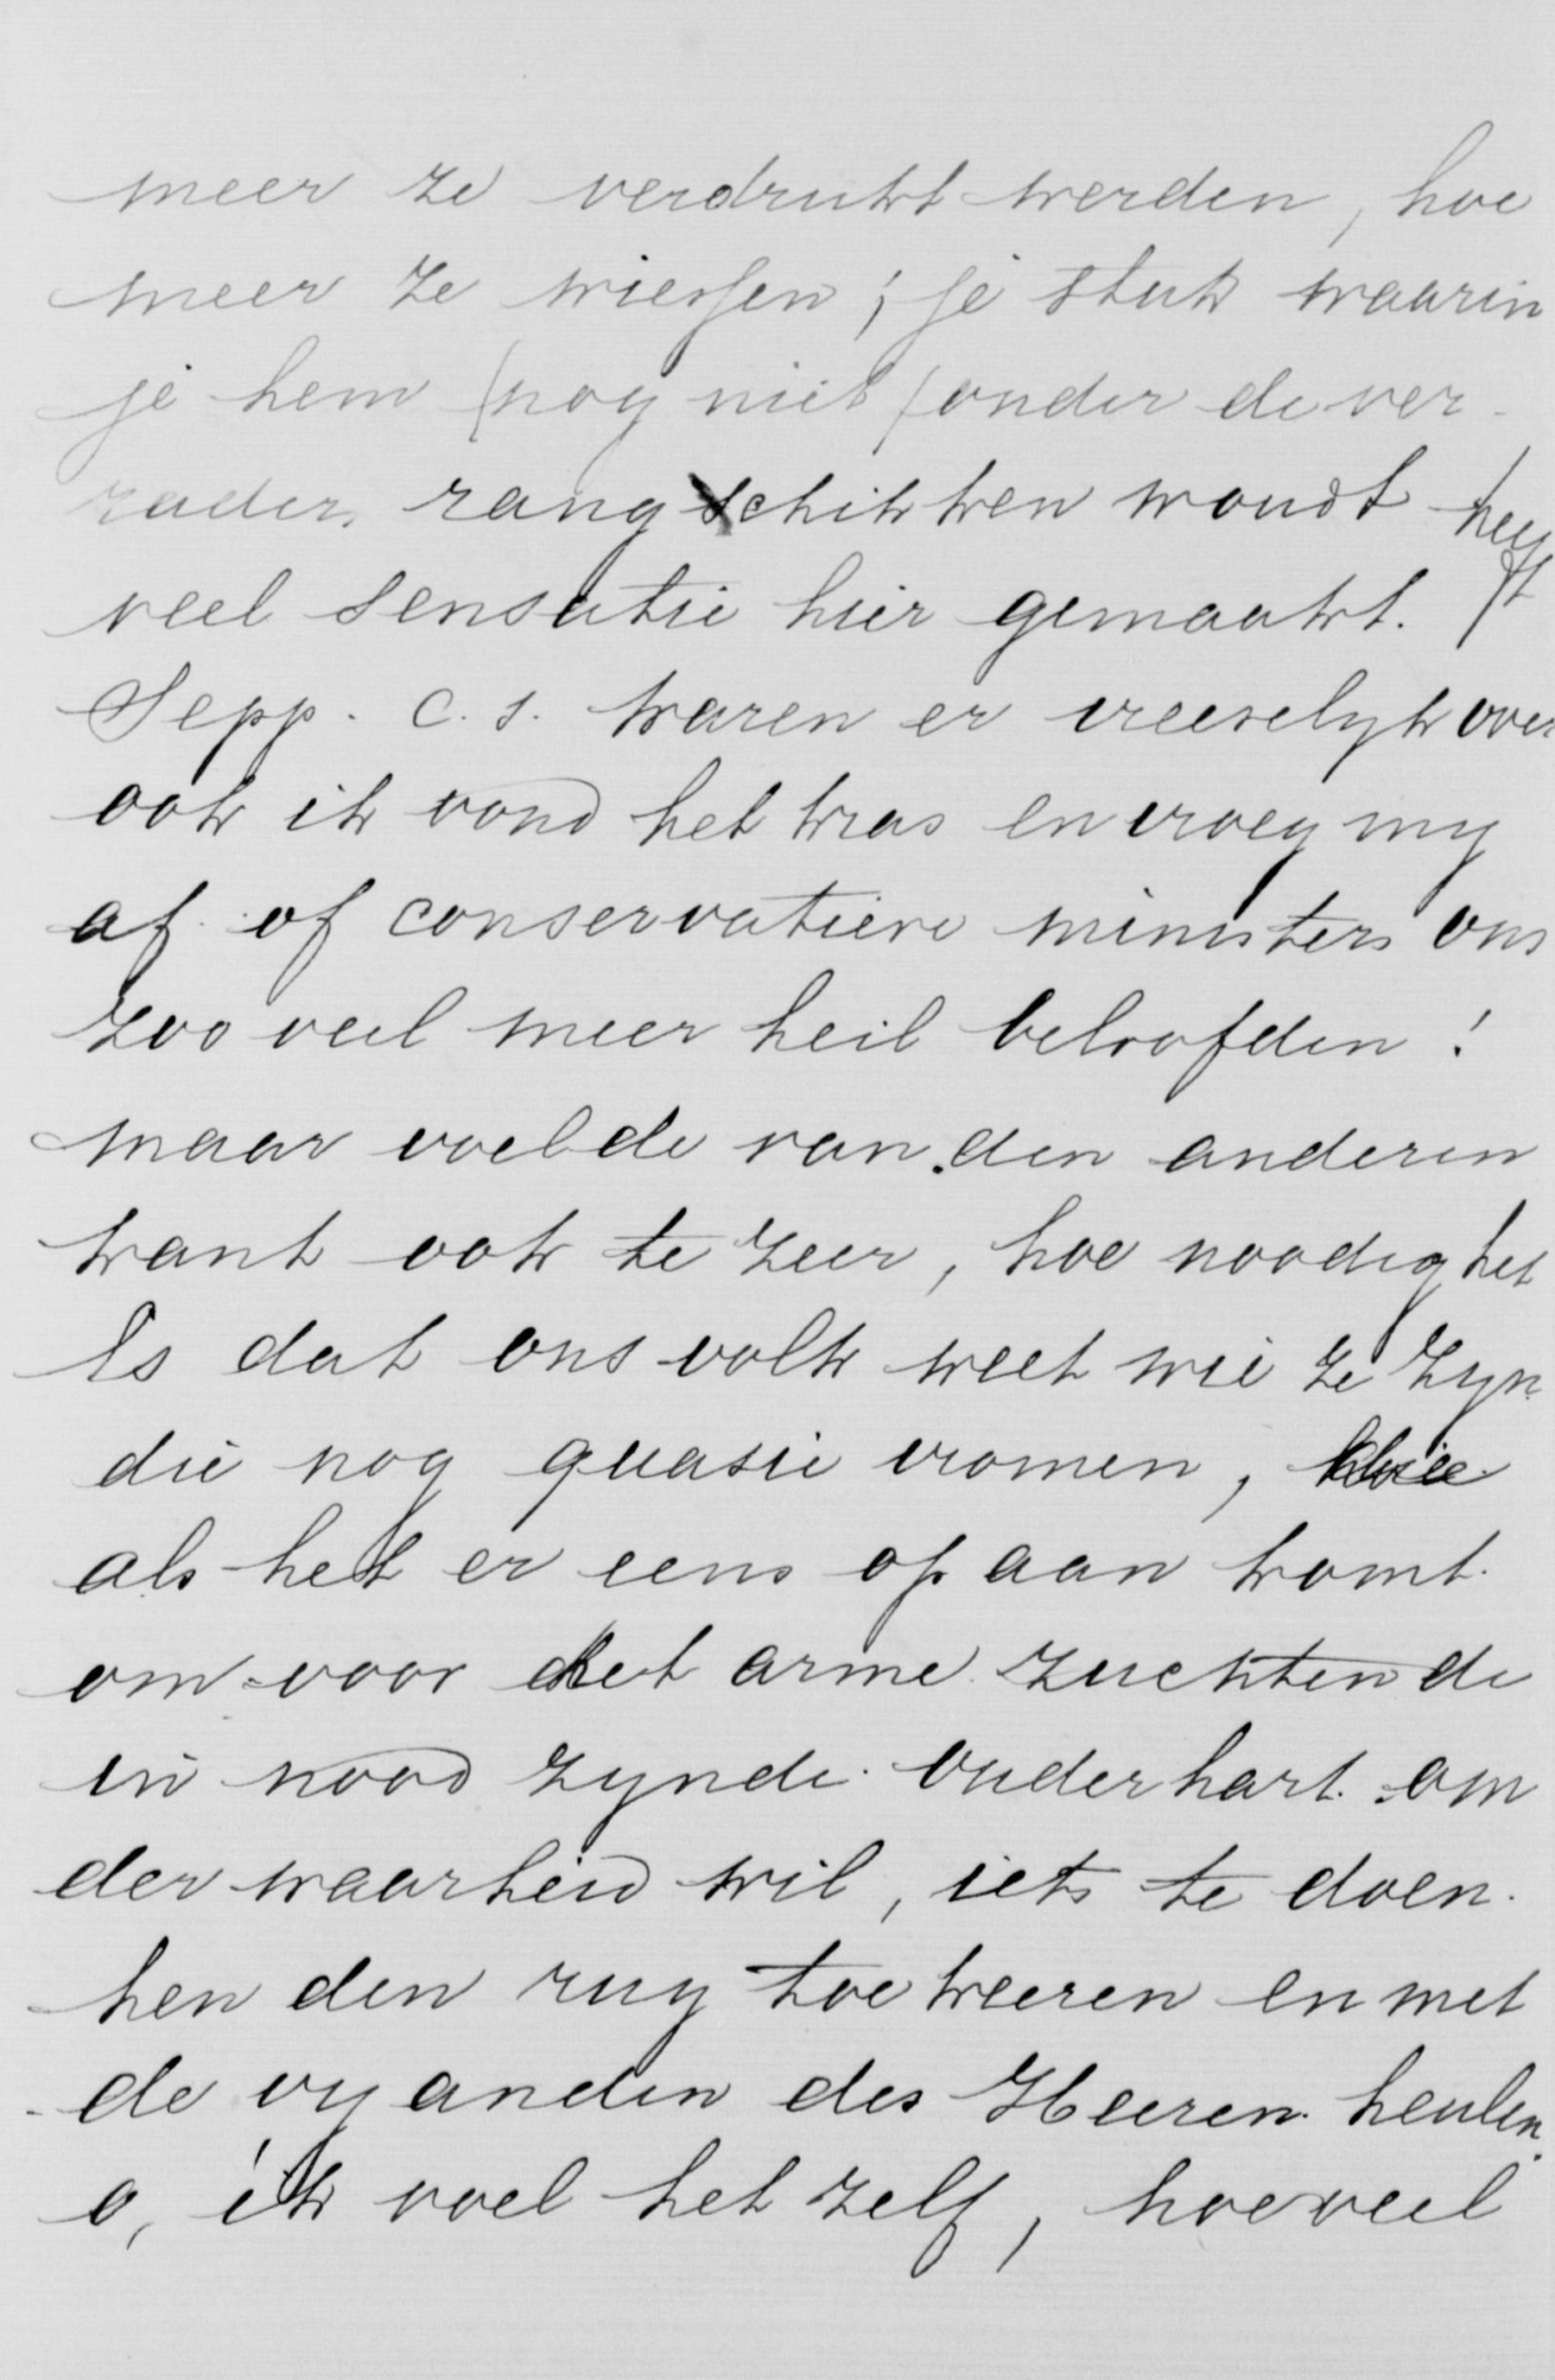 meer ze verdrukt werden, hoe
meer ze wiessen; je stuk waarin
je hem (nog niet) onder de ver-
raders rangschikken woudt heeft
veel sensatie hier gemaakt.
Sepp. c.s. waren er vreeselyk over
ook ik vond het kras en vroeg my
af of conservatieve ministers ons
zoo veel meer heil beloofden!
maar voelde van den anderen
kant ook te zeer, hoe noodig het
is dat ons volk weet wie ze zyn
die nog quasie vromen, die
als het er eens op aan komt
om voor het arme zuchtende
in nood zynde ouderhart om
der waarheid wil, iets te doen
hen den rug toe keeren en met
de vyanden des Heeren heulen.
o, ik voel het zelf, hoeveel